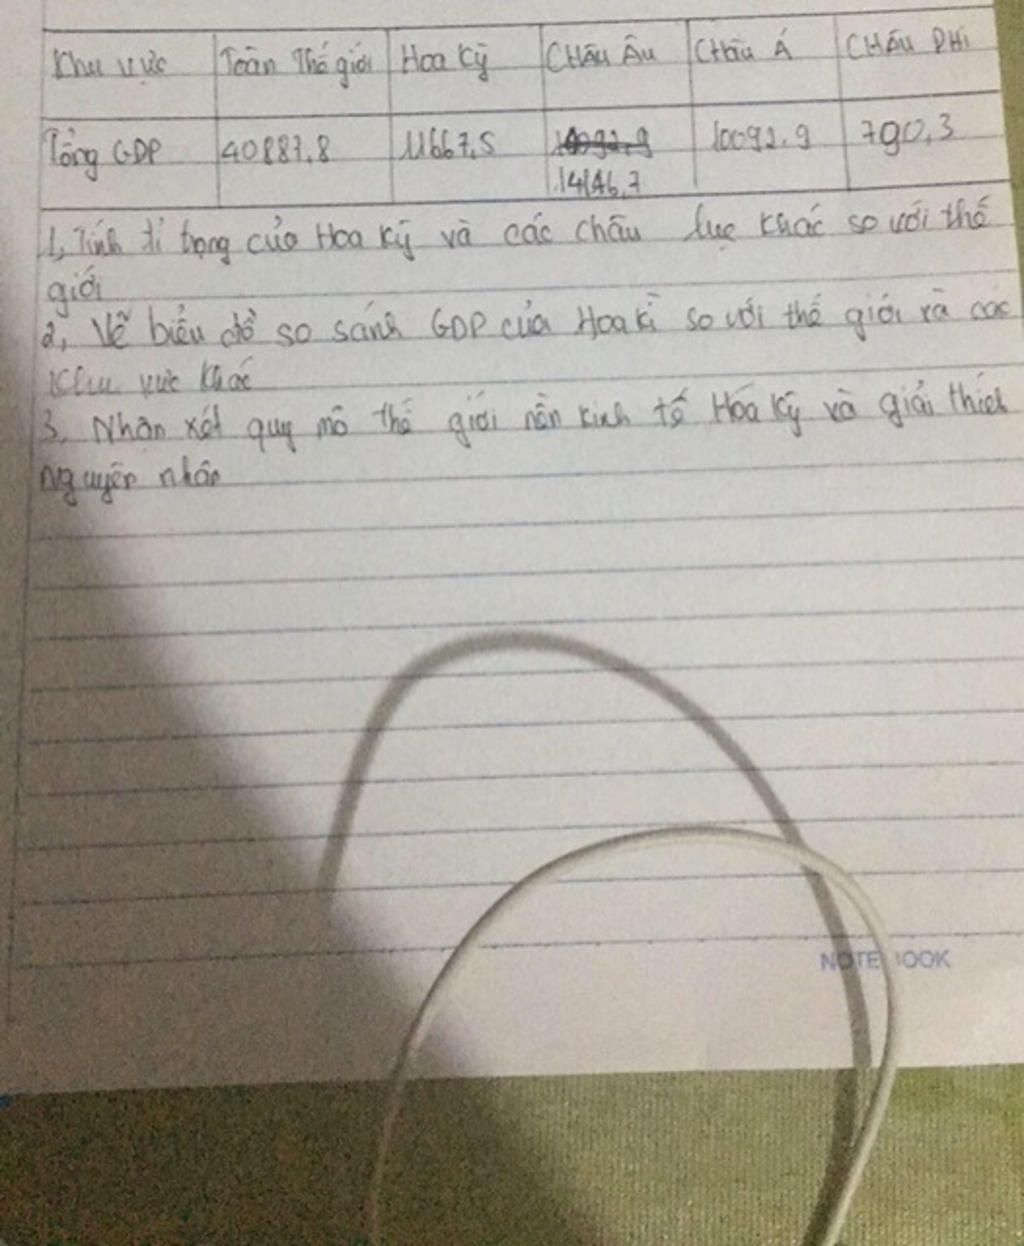 Khu vực Toàn Thế giới Hoa Kỳ CHÂU ÂU CHÂU Á CHÂU PHI
Tổng GDP 40887,8 11667,5 14146,7 10092,9 790,3
1, Tính tỉ trọng của Hoa Kỳ và các châu lục khác so với thế
giới
2, Vẽ biểu đồ so sánh GDP của Hoa kì so với thế giới và các
Khu vực khác
3, Nhận xét quy mô thế giới nền kinh tế Hoa Kỳ và giải thích
nguyên nhân
NOTEBOOK